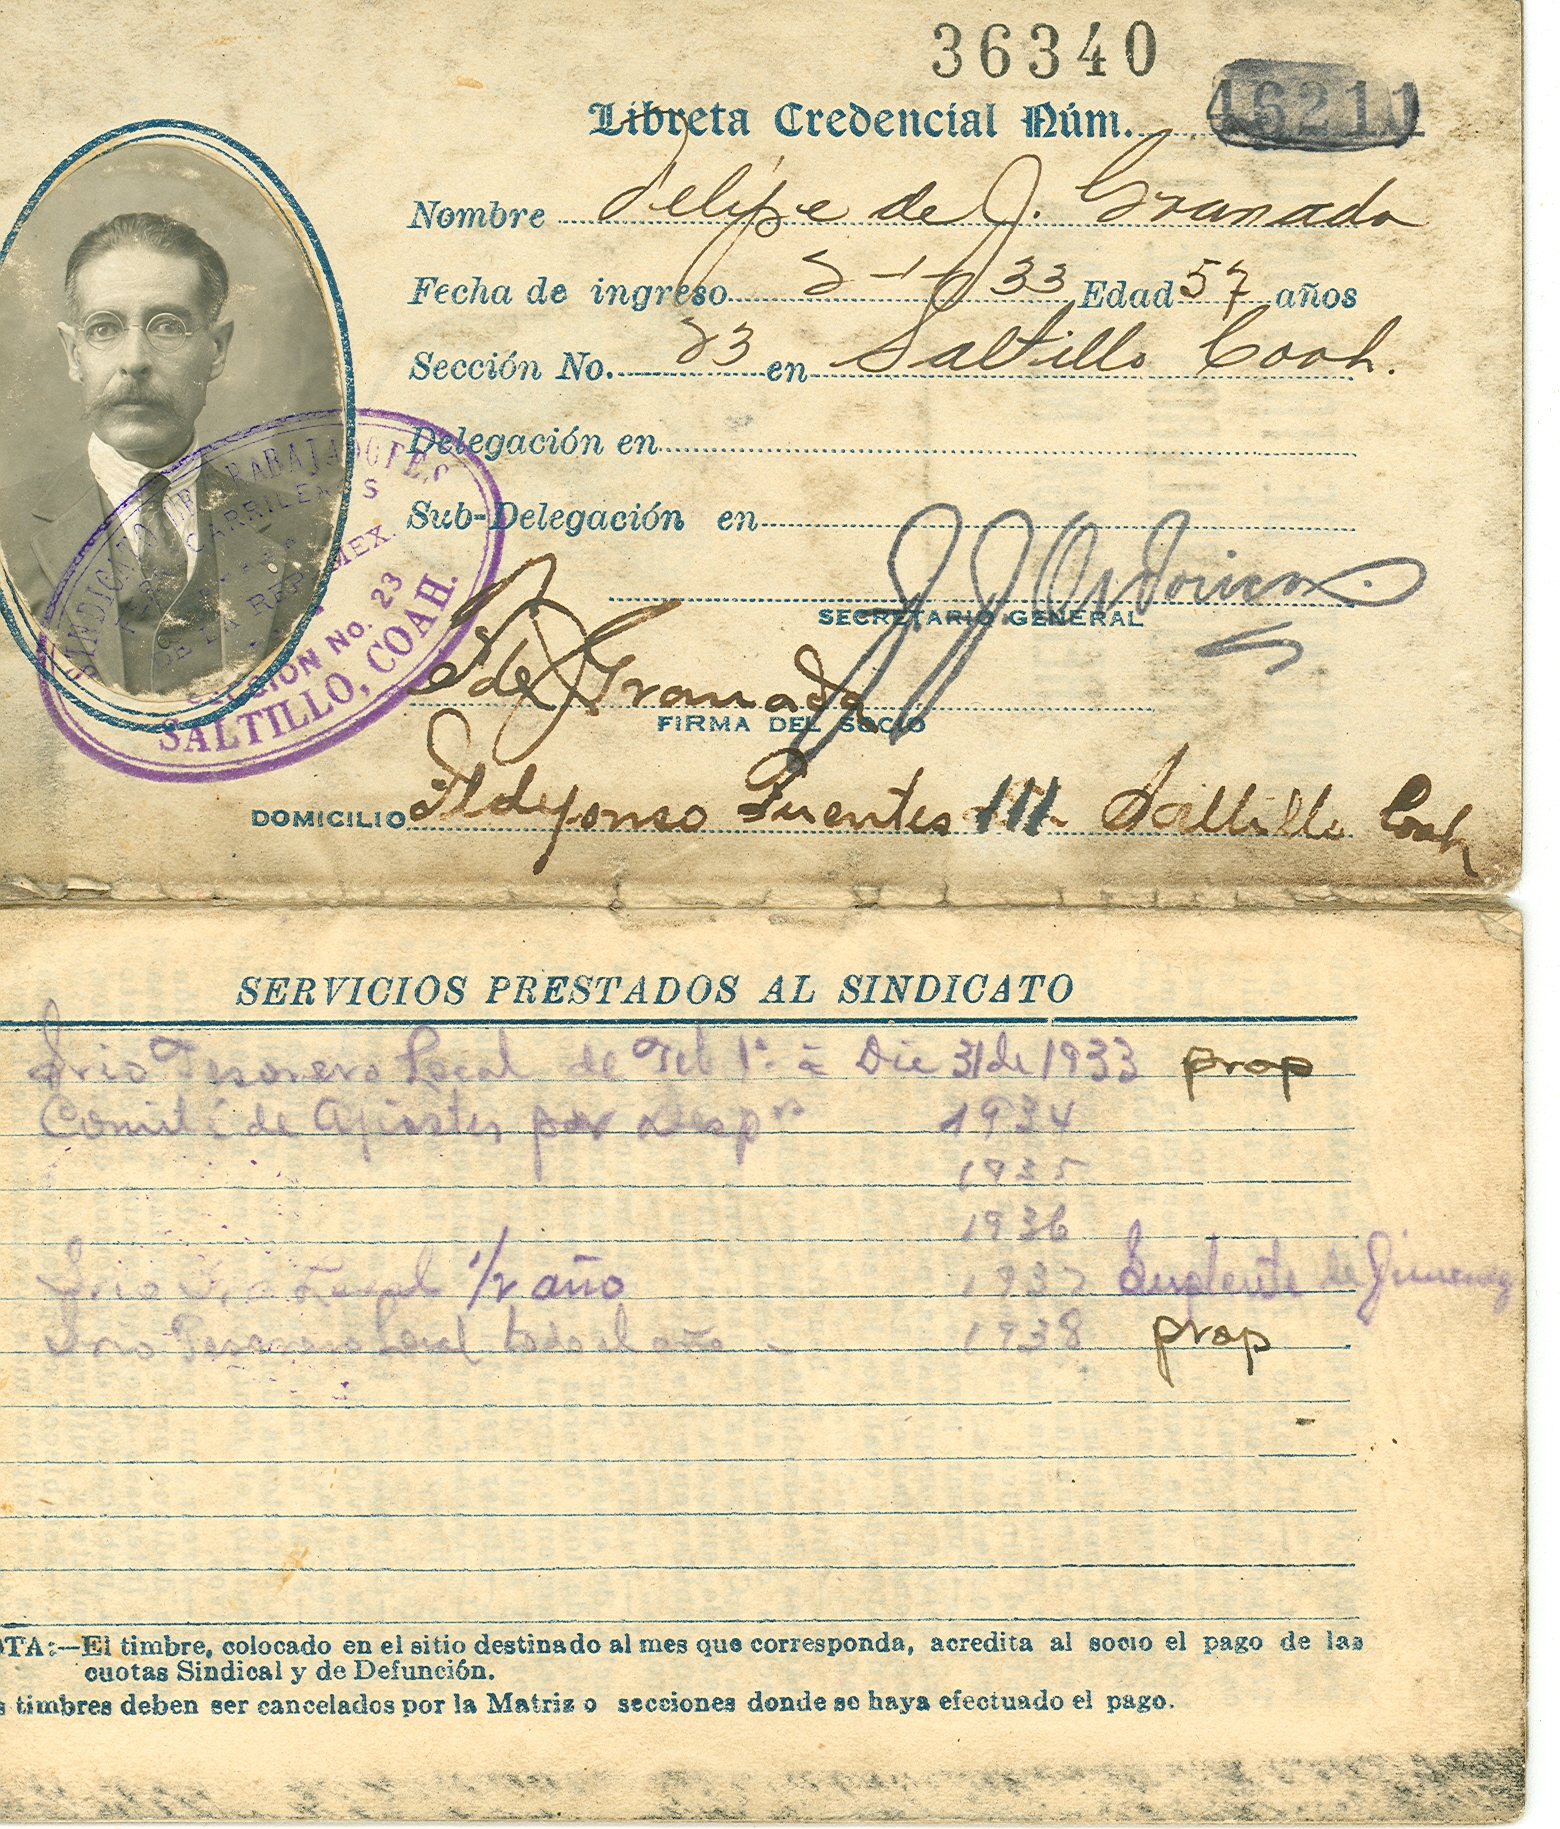 36340
Libreta Credencial Núm. 46211
Nombre Felipe de J. Granado
Fecha de ingreso 2-1-33 Edad 57 años
Sección No. 23 en Saltillo Coah.
Delegación en
Sub-Delegación en
SECRETARIO GENERAL
F de J Granado
FIRMA DEL SOCIO
DOMICILIO Ildefonso Fuentes 111 Saltillo Coah
SINDICATO DE TRABAJADORES
FERROCARRILEROS
DE LA REP. MEX.
SECCION No. 23
SALTILLO, COAH.
SERVICIOS PRESTADOS AL SINDICATO
Srio Tesorero Local de Feb 1º á Dic 31 de 1933 prop
Comité de Ajustes por 1934
1935
1936
Srio Local 1/2 año 1937 Suplente de Jimenez
Srio Tesorero Local todo el año 1938 prop
OTA:—El timbre, colocado en el sitio destinado al mes que corresponda, acredita al socio el pago de las
cuotas Sindical y de Defunción.
s timbres deben ser cancelados por la Matriz o secciones donde se haya efectuado el pago.